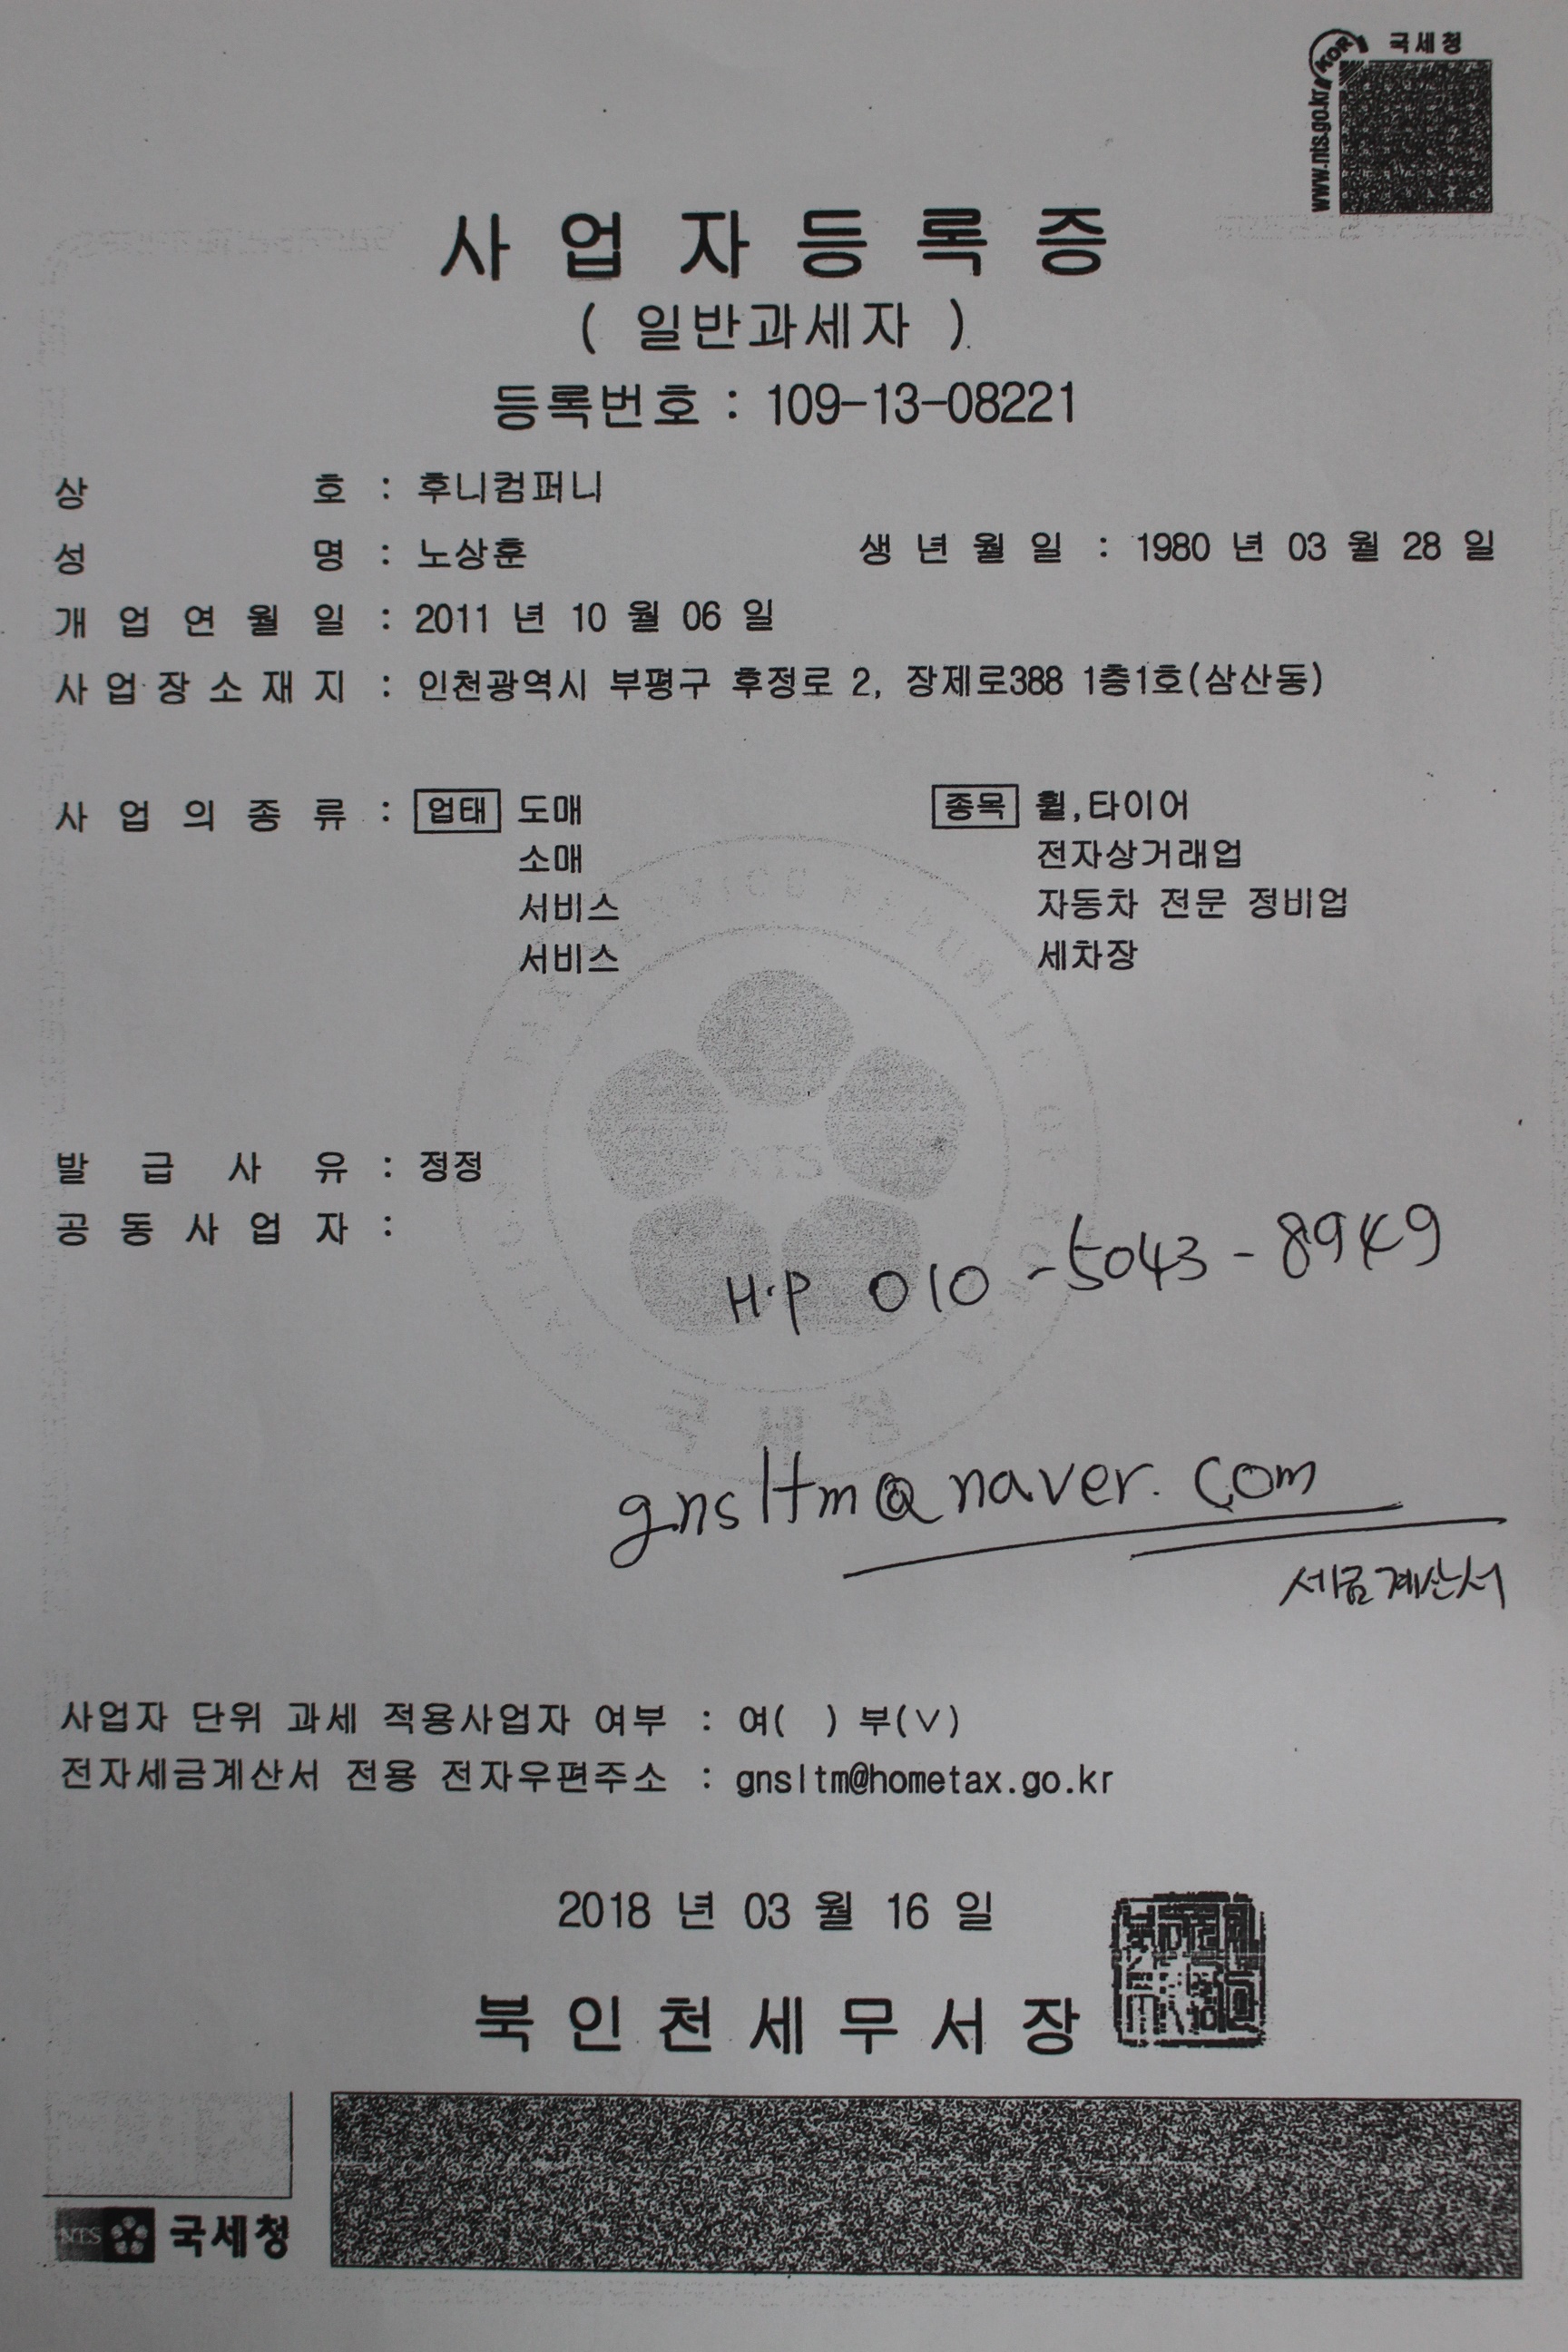 국세청
KOR
www.nts.go.kr
사업자등록증
( 일반과세자 )
등록번호 : 109-13-08221
상 호 : 후니컴퍼니
성 명 : 노상훈 생 년 월 일 : 1980 년 03 월 28 일
개 업 연 월 일 : 2011 년 10 월 06 일
사 업 장 소 재 지 : 인천광역시 부평구 후정로 2, 장제로388 1층1호(삼산동)
사 업 의 종 류 : 업태 도매 종목 휠,타이어
소매 전자상거래업
서비스 자동차 전문 정비업
서비스 세차장
NTS
발 급 사 유 : 정정
공 동 사 업 자 :
H.P 010-5043-8949
국세청
gnsltm@naver.com
세금계산서
사업자 단위 과세 적용사업자 여부 : 여( ) 부(∨)
전자세금계산서 전용 전자우편주소 : gnsltm@hometax.go.kr
2018 년 03 월 16 일
북인천세무서장
NTS 국세청